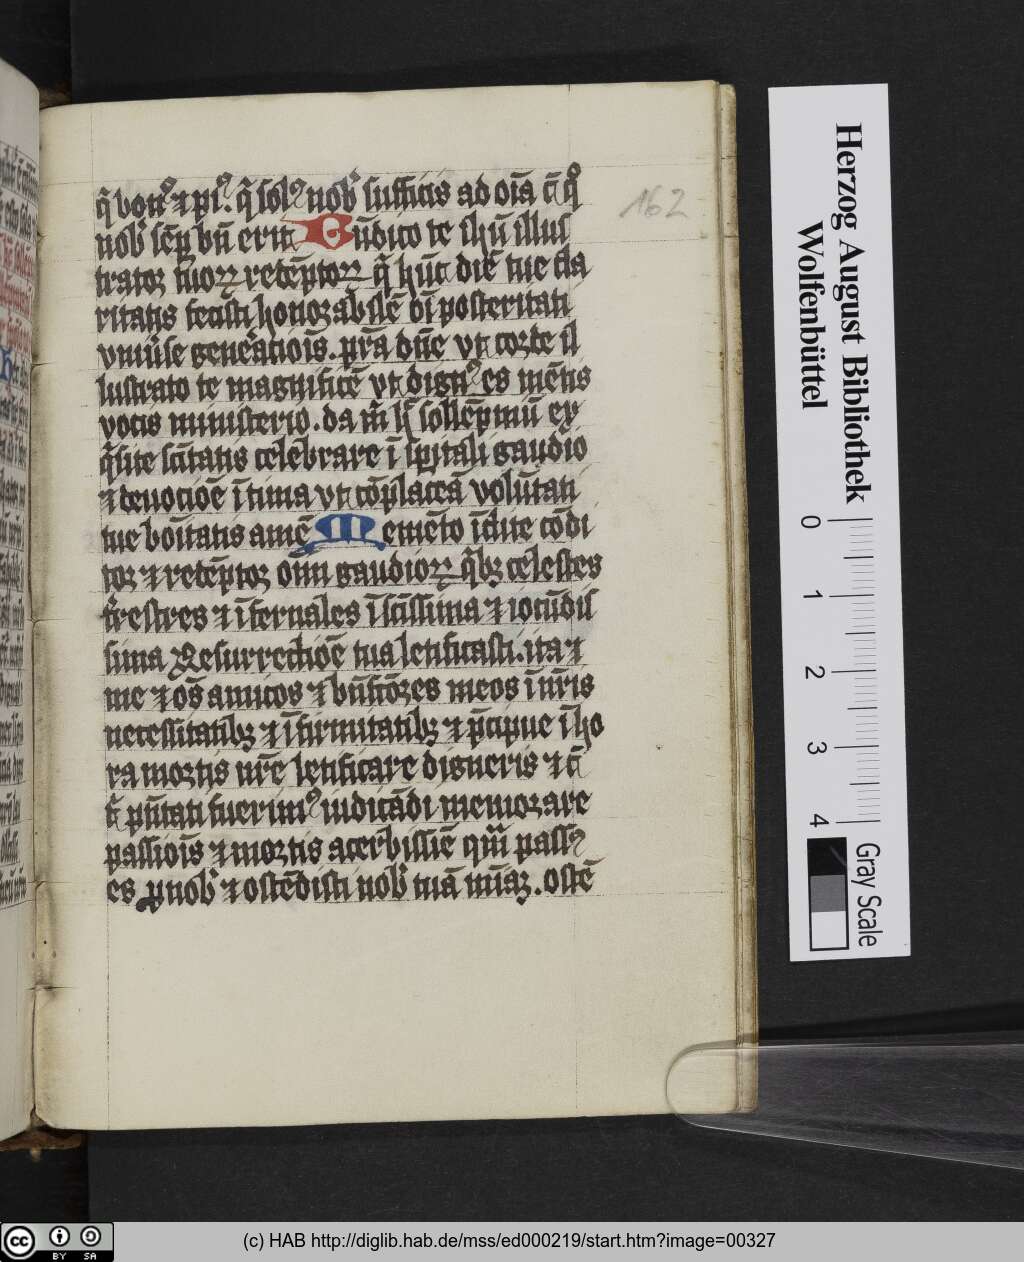 q̄ bonꝰ ⁊ piꝰ. q̄ solꝰ nob̄ sufficis ad oīa ⁊ qͦ
nob̄ sēp bn̄ erit Bn̄dico te ihū illus
trator tuoꝝ retēptoꝝ q̄ hūc diē tue cla
ritatis fecisti honorabilē ōi posteritati
vniūse gene̅atiois̄. pr̄a dn̄e vt corde il
lustrato te magnificē vt dignꝰ es mētis
vocis ministerio. da m̄ h̄ sollēpniū ex
q̄site sc̄itatis celebrare ī sp̄itali gaudio
⁊ deuociōe ītima vt cōplaceā volūtati
tue bōitatis amē Memēto īclite cōdi
tor ⁊ retēptor oīm gaudioꝝ q̄bꝫ celestes
t̄restres ⁊ īfernales ī sc̄issima ⁊ iocūdis
sima Resurrectiōe tua letificasti. ita ⁊
me ⁊ oēs amicos ⁊ bn̄fc̄ores meos ī nr̄is
necessītatibꝫ ⁊ īfirmitatibꝫ ⁊ p̄cipue ī ho
ra mortis nr̄e letificare digneris ⁊ cū
t̄ p̄ntati fuerimꝰ iudicādi memorare
passiois̄ ⁊ mortis acerbissie̅ qm̄ passꝰ
es ꝓ nob̄ ⁊ ostēdisti nob̄ tuā mīaꝫ. ostē
162
Herzog August Bibliothek
Wolfenbüttel
0 1 2 3 4
Gray Scale
cc BY SA
(c) HAB http://diglib.hab.de/mss/ed000219/start.htm?image=00327